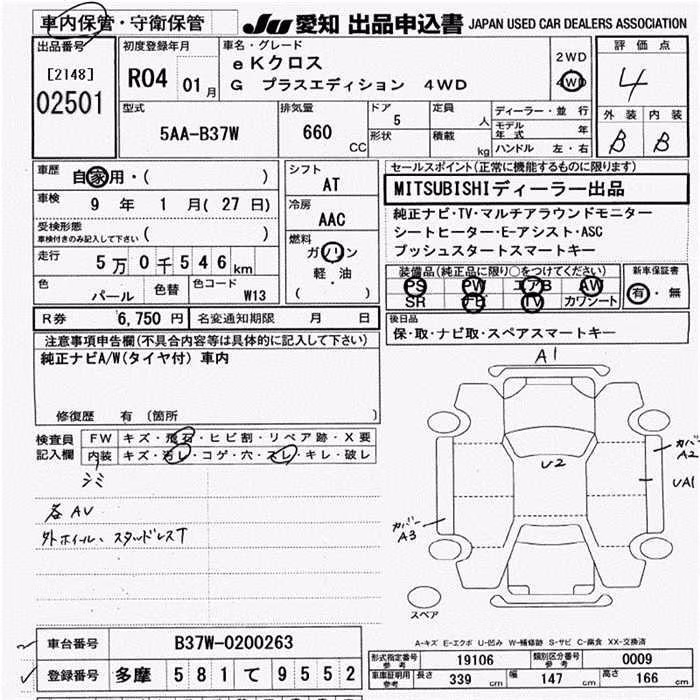 車内保管・守衛保管
JU 愛知 出品申込書 JAPAN USED CAR DEALERS ASSOCIATION
出品番号
[2148]
02501
初度登録年月
R04 01月
車名・グレード
eKクロス
G プラスエディション 4WD
2WD
4WD
評価点
4
外装 内装
B B
型式
5AA-B37W
排気量
660
CC
ドア
5
形状
定員
人
積載
kg
ディーラー・並行
モデル年式 年
ハンドル 左・右
車歴
自家用・( )
車検
9年 1月(27日)
受検形態
車検付きのみ記入して下さい ( )
走行
5万0千546km
色
パール
色替
色コード
W13
シフト
AT
冷房
AAC
燃料
ガソリン
軽・油
( )
セールスポイント(正常に機能するものに限ります)
MITSUBISHIディーラー出品
純正ナビ・TV・マルチアラウンドモニター
シートヒーター・E-アシスト・ASC
プッシュスタートスマートキー
装備品(純正品に限り○をつけてください)
PS PW エアB AW
SR ナビ TV カワシート
新車保証書
有・無
R券 6,750円 名変通知期限 月 日
後日品
保・取・ナビ取・スペアスマートキー
注意事項申告欄(不具合内容等は具体的に記入して下さい)
純正ナビA/W(タイヤ付) 車内
修復歴 有 (箇所 )
検査員
記入欄
FW キズ・飛石・ヒビ割・リペア跡・X要
内装 キズ・汚レ・コゲ・穴・スレ・キレ・破レ
シミ
各AU
外ホイール、スタッドレスT
A1
U2
カバー
A2
UA1
カバー
A3
スペア
A-キズ E-エクボ U-凹み W-補修跡 S-サビ C-腐食 XX-交換済
車台番号 B37W-0200263
登録番号 多摩 581 て 9552
形式指定番号
参考
19106
類別区分番号
参考
0009
車庫証明用
参考
長さ 339 cm 幅 147 cm 高さ 166 cm